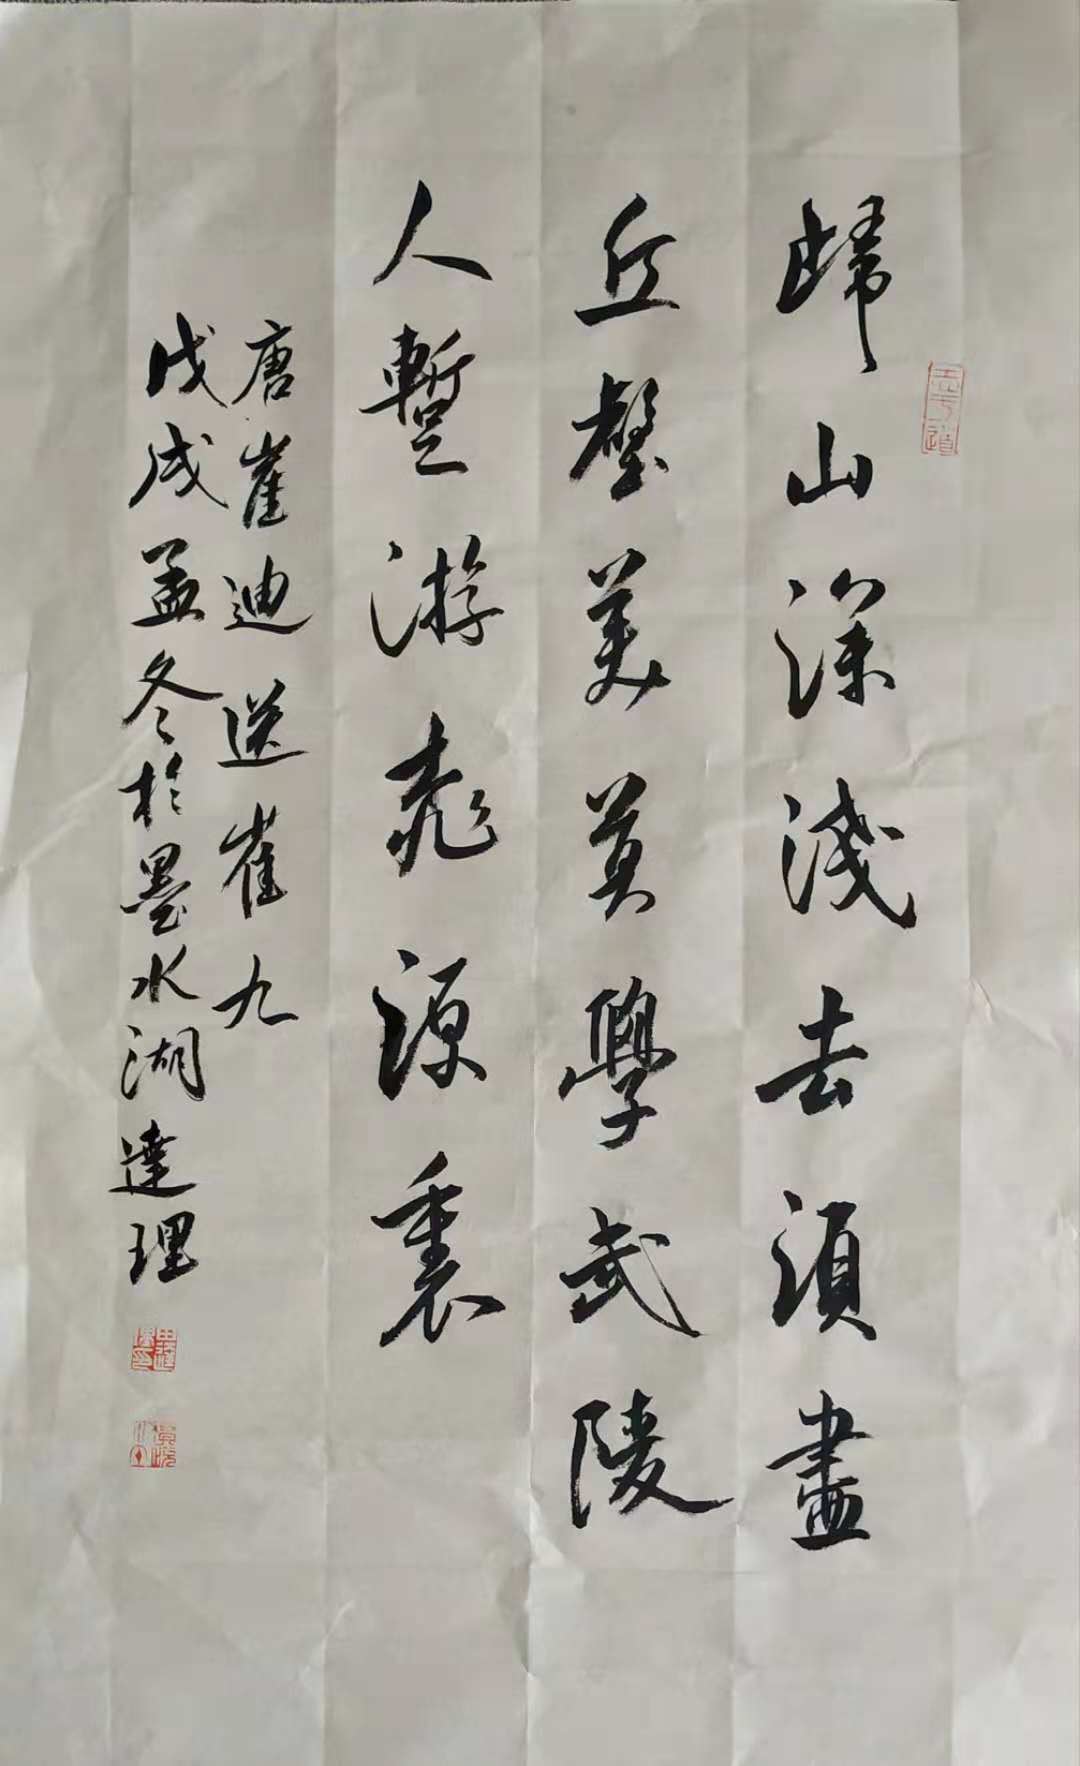 歸山深淺去須盡
丘壑美莫學武陵
人暫游桃源裏
唐崔迪送崔九
戊戌孟冬於墨水湖達理